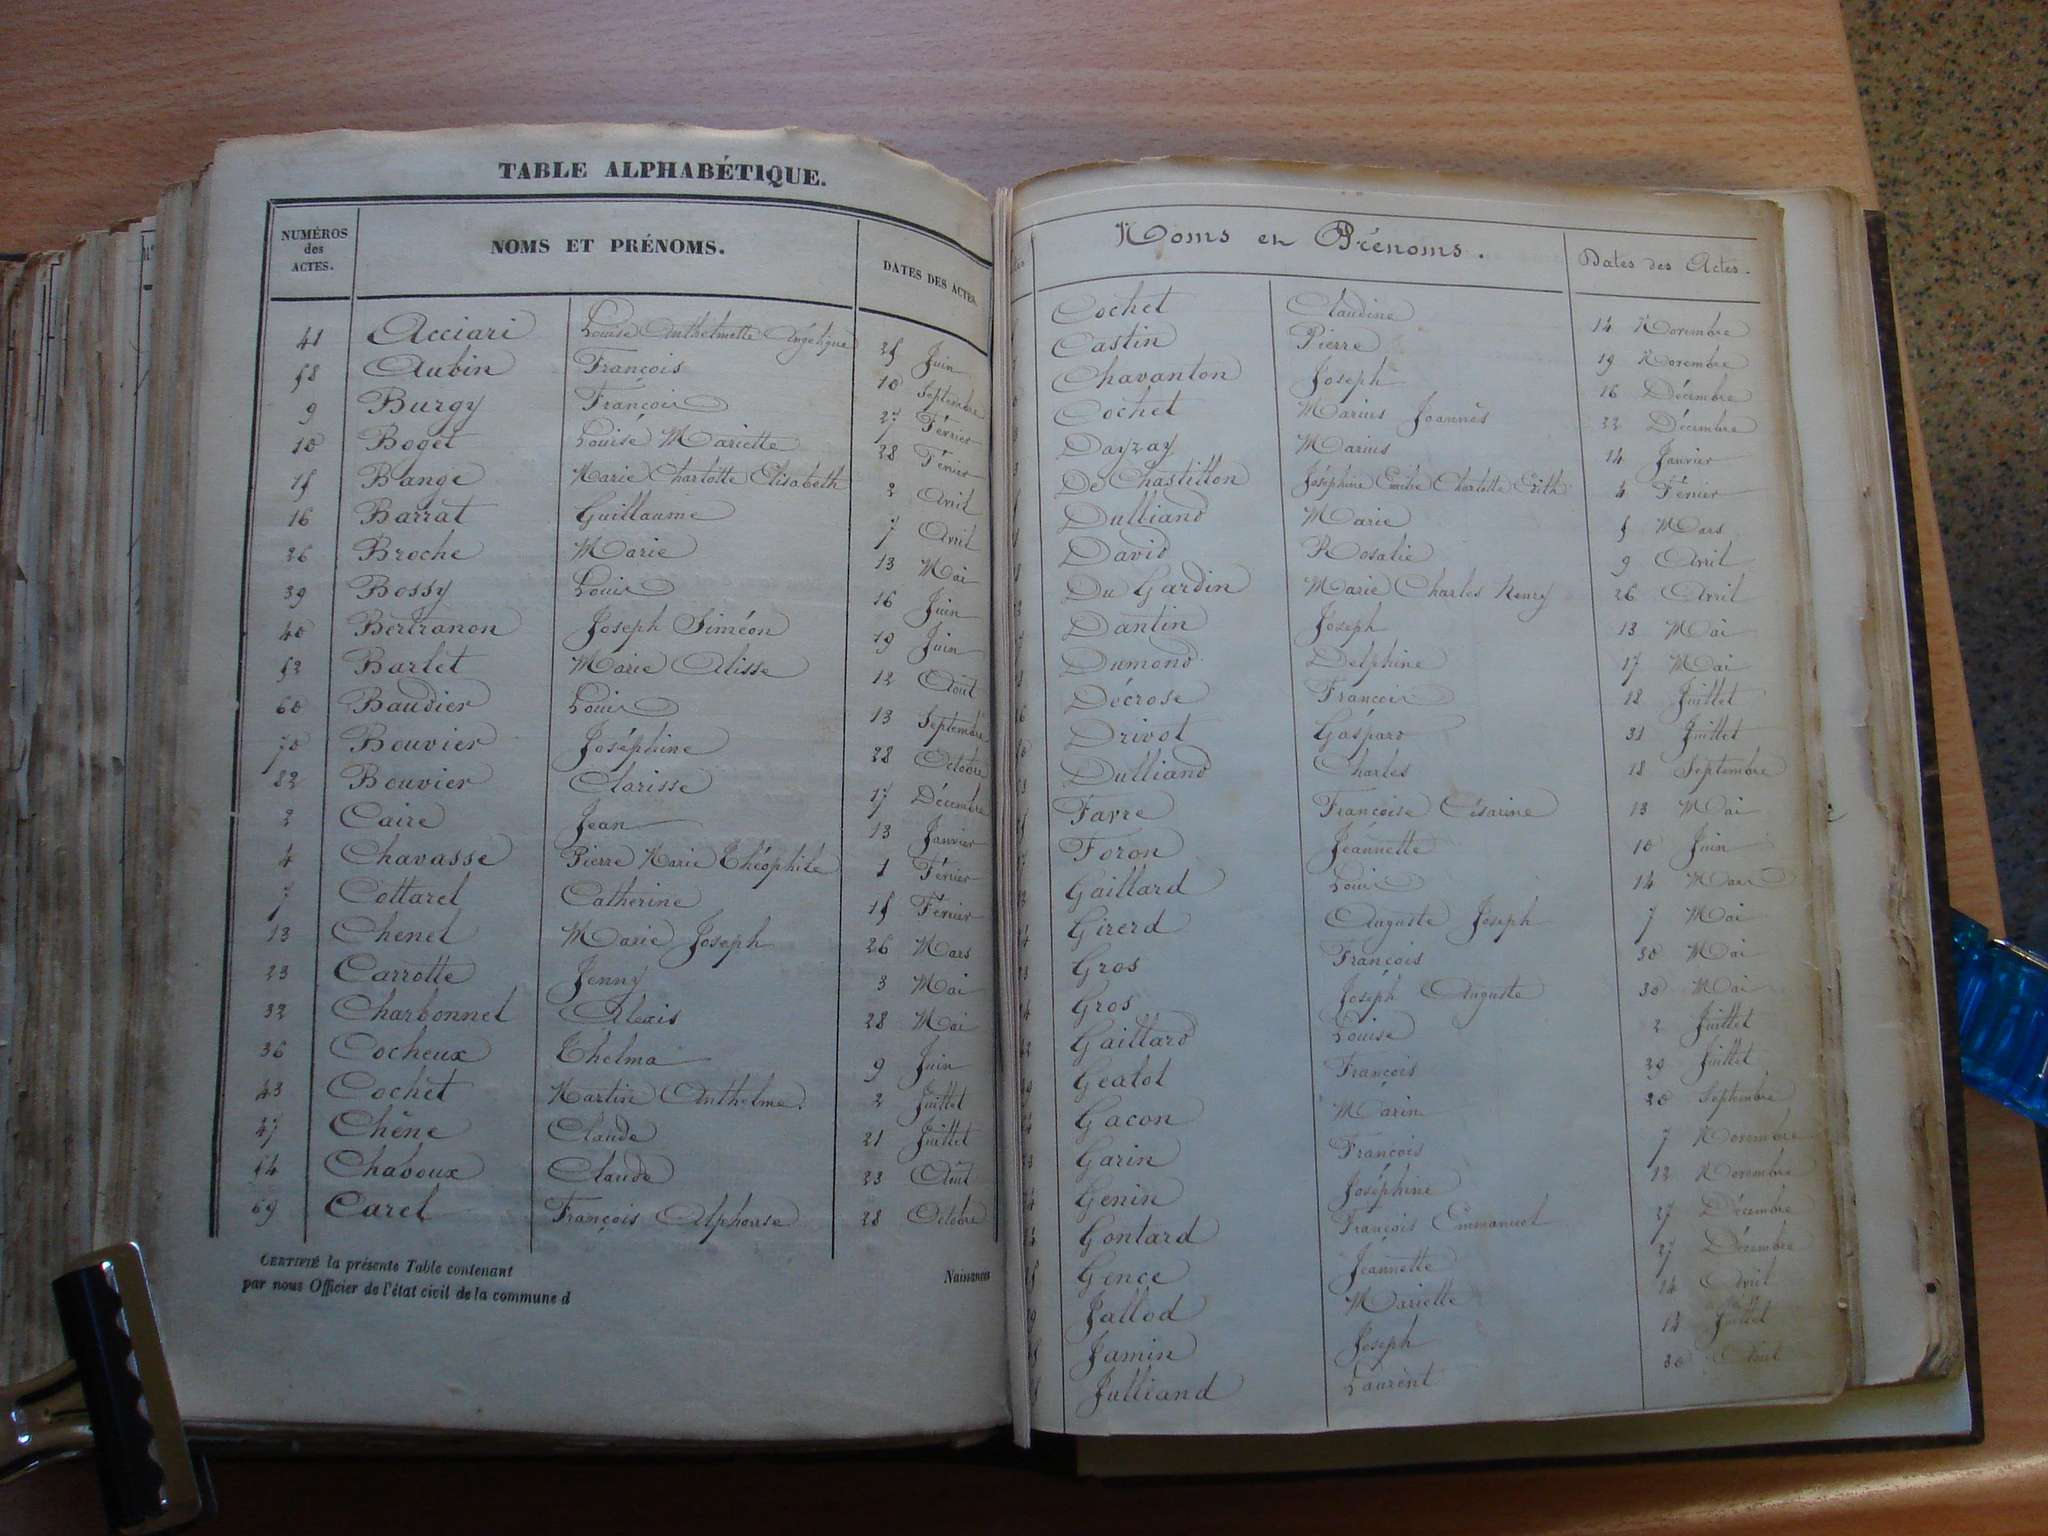 TABLE ALPHABÉTIQUE.
NUMÉROS des ACTES. NOMS ET PRÉNOMS. DATES DES ACTES.
41 Acciari Louise Anthelmette Angélique 25 Juin
58 Aubin François 10 Septembre
9 Burgy François 27 Février
10 Boget Louise Mariette 28 Février
15 Bange Marie Charlotte Elisabeth 2 Avril
16 Barrat Guillaume 7 Avril
26 Broche Marie 13 Mai
39 Bossy Louis 16 Juin
40 Bertranon Joseph Siméon 19 Juin
52 Barlet Marie Alisse 12 Août
60 Baudier Louis 13 Septembre
70 Bouvier Joséphine 28 Octobre
82 Bouvier Clarisse 17 Décembre
2 Caire Jean 13 Janvier
4 Chavasse Pierre Marie Théophile 1 Février
7 Cottarel Catherine 15 Février
13 Chenel Marie Joseph 26 Mars
23 Carrotte Jenny 3 Mai
32 Charbonnel Alexis 28 Mai
36 Cocheux Thelma 9 Juin
43 Cochet Martin Anthelme. 2 Juillet
47 Chêne Claude 21 Juillet
54 Chaboux Claude 23 Août
69 Carel François Alphonse 28 Octobre
CERTIFIÉ la présente Table contenant Naissances
par nous Officier de l'état civil de la commune d
Noms et Prénoms. Dates des Actes.
Cochet Claudine 14 Novembre
Castin Pierre 19 Novembre
Chavanton Joseph 16 Décembre
Cochet Marius Joannès 22 Décembre
Dayzay Marius 14 Janvier
De Chastillon Joséphine Emilie Charlotte Edith 4 Février
Dulliand Marie 5 Mars
David Rosalie 9 Avril
Du Gardin Marie Charles Henry 26 Avril
Dantin Joseph 13 Mai
Dumond Delphine 17 Mai
Décrose François 18 Juillet
Drivot Gaspard 31 Juillet
Dulliand Charles 18 Septembre
Favre Françoise Césarine 13 Mai
Foron Jeannette 10 Juin
Gaillard Louis 14 Mars
Girerd Auguste Joseph 7 Mai
Gros François 30 Mai
Gros Joseph Auguste 30 Mai
Gaillard Louise 2 Juillet
Gealot François Juillet
Gacon Marin 20 Septembre
Garin François 7 Novembre
Genin Joséphine 12 Novembre
Gontard François Emmanuel 27 Décembre
Gence Jeannette 27 Décembre
Jallod Mariette 14 Avril
Jamin Joseph 12 Juillet
Julliand Laurent 30 Août